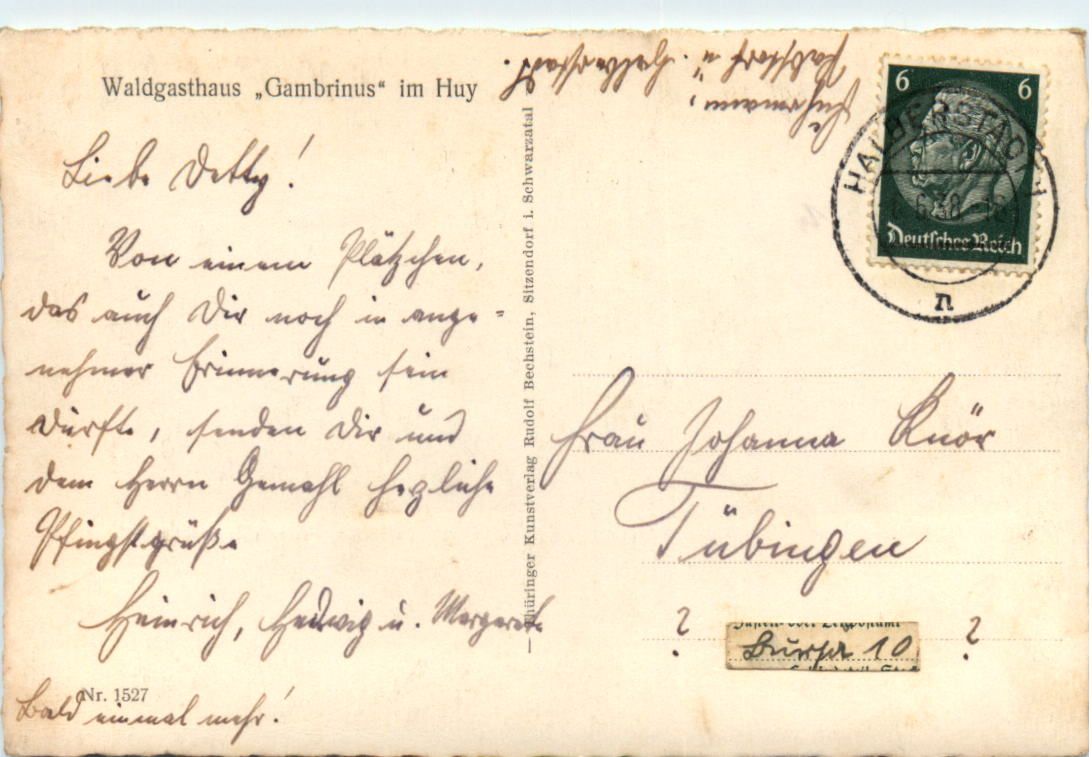 Waldgasthaus „Gambrinus“ im Huy
Liebe Detty!
Von einem Plätzchen,
das auch Dir noch in ange=
nehmer Erinnerung sein
dürfte, senden Dir und
dem Herrn Gemahl herzliche
Pfingstgrüße
Heinrich, Hedwig u. Margarete
Nr. 1527
Bald einmal mehr!
Thüringer Kunstverlag Rudolf Bechstein, Sitzendorf i. Schwarzatal
Fuhrmann,
Pabstorf ü. Halberstadt.
6 6
Deutsches Reich
HALBERSTADT 1
6.38
n
Frau Johanna Knör
Tübingen
? ?
Bursa 10